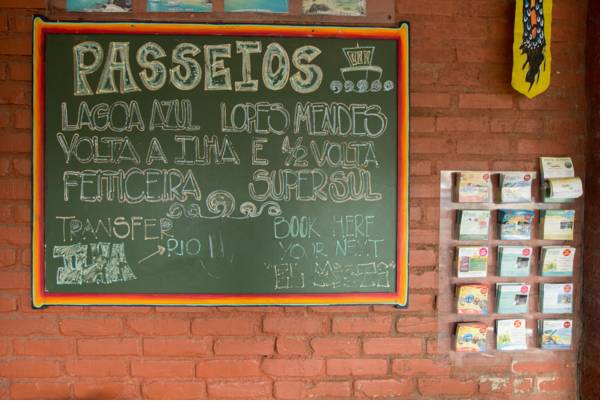 PASSEIOS
LAGOA AZUL LOPES MENDES
VOLTA A ILHA E 1/2 VOLTA
FEITICEIRA SUPER SUL
TRANSFER
ILHA → RIO
BOOK HERE
YOUR NEXT